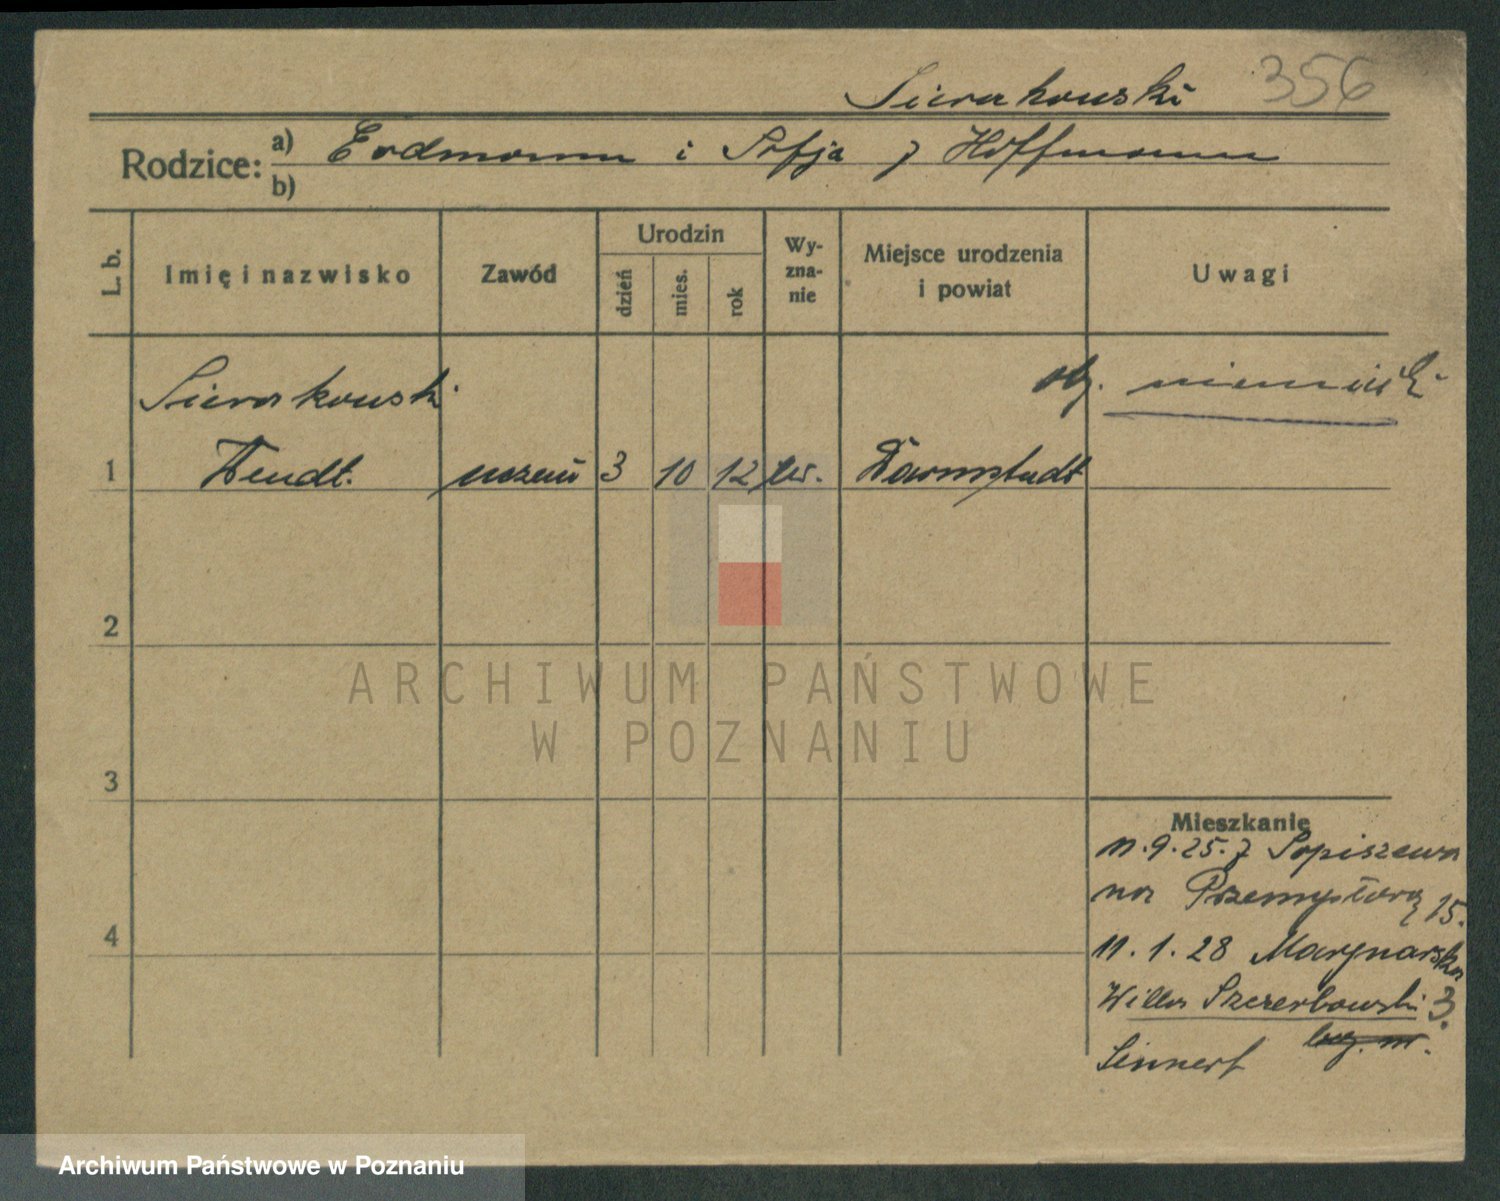 Sierakowski 356
Rodzice: a) Erdmann i Sofja z Hoffmann
b)
L. b. Imię i nazwisko Zawód Urodzin dzień mies. rok Wy-zna-nie Miejsce urodzenia i powiat Uwagi
Sierakowski ob. niemiecki
1 Wendt. uczeń 3 10 12 ew. Darmstadt
2
ARCHIWUM PAŃSTWOWE
W POZNANIU
3
Mieszkanie
11.9.25. z Sopiszewa
na Przemysłową 15.
4
11.1.28 Marynarska
Willa Szczerbowski 3.
Sinnert
Archiwum Państwowe w Poznaniu